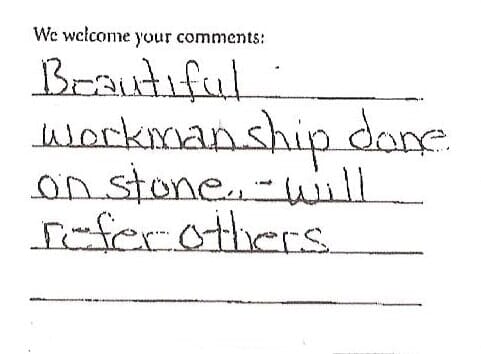 We welcome your comments:
Beautiful
workmanship done
on stone.. - will
refer others